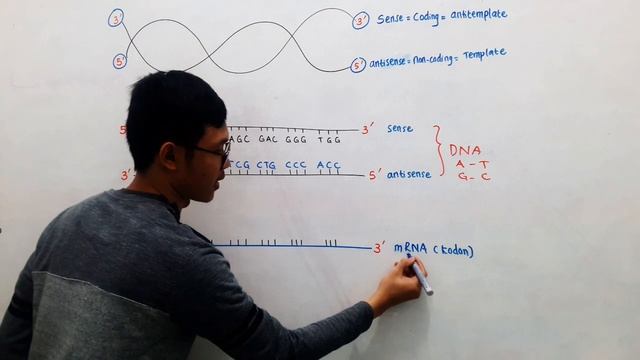 3' 3' Sense = Coding = antitemplate
5' 5' antisense = Non-coding = Template
5' 3' sense
AGC GAC GGG TGG
DNA
A - T
G - C
TCG CTG CCC ACC
3' 5' antisense
3' mRNA (kodon)